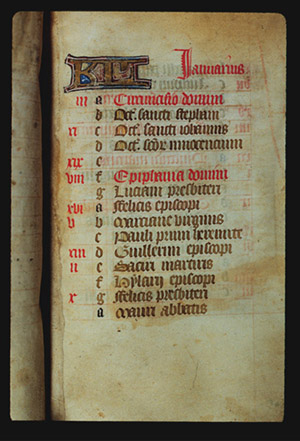 KL Januarius
iii a Circumcisio domini
d Oct. sancti stephani
xi Oct. sancti iohannis
d Oct. scorum innocentium
xix e
viii f Epiphania domini
g Luciani presbiteri
xvi a Felicis episcopi
v b Marciane virginis
c Pauli primi heremite
xiii d Guillermi episcopi
ii e Satiri martiris
f Hylarii episcopi
x g Felicis presbiteri
a Mauri abbatis